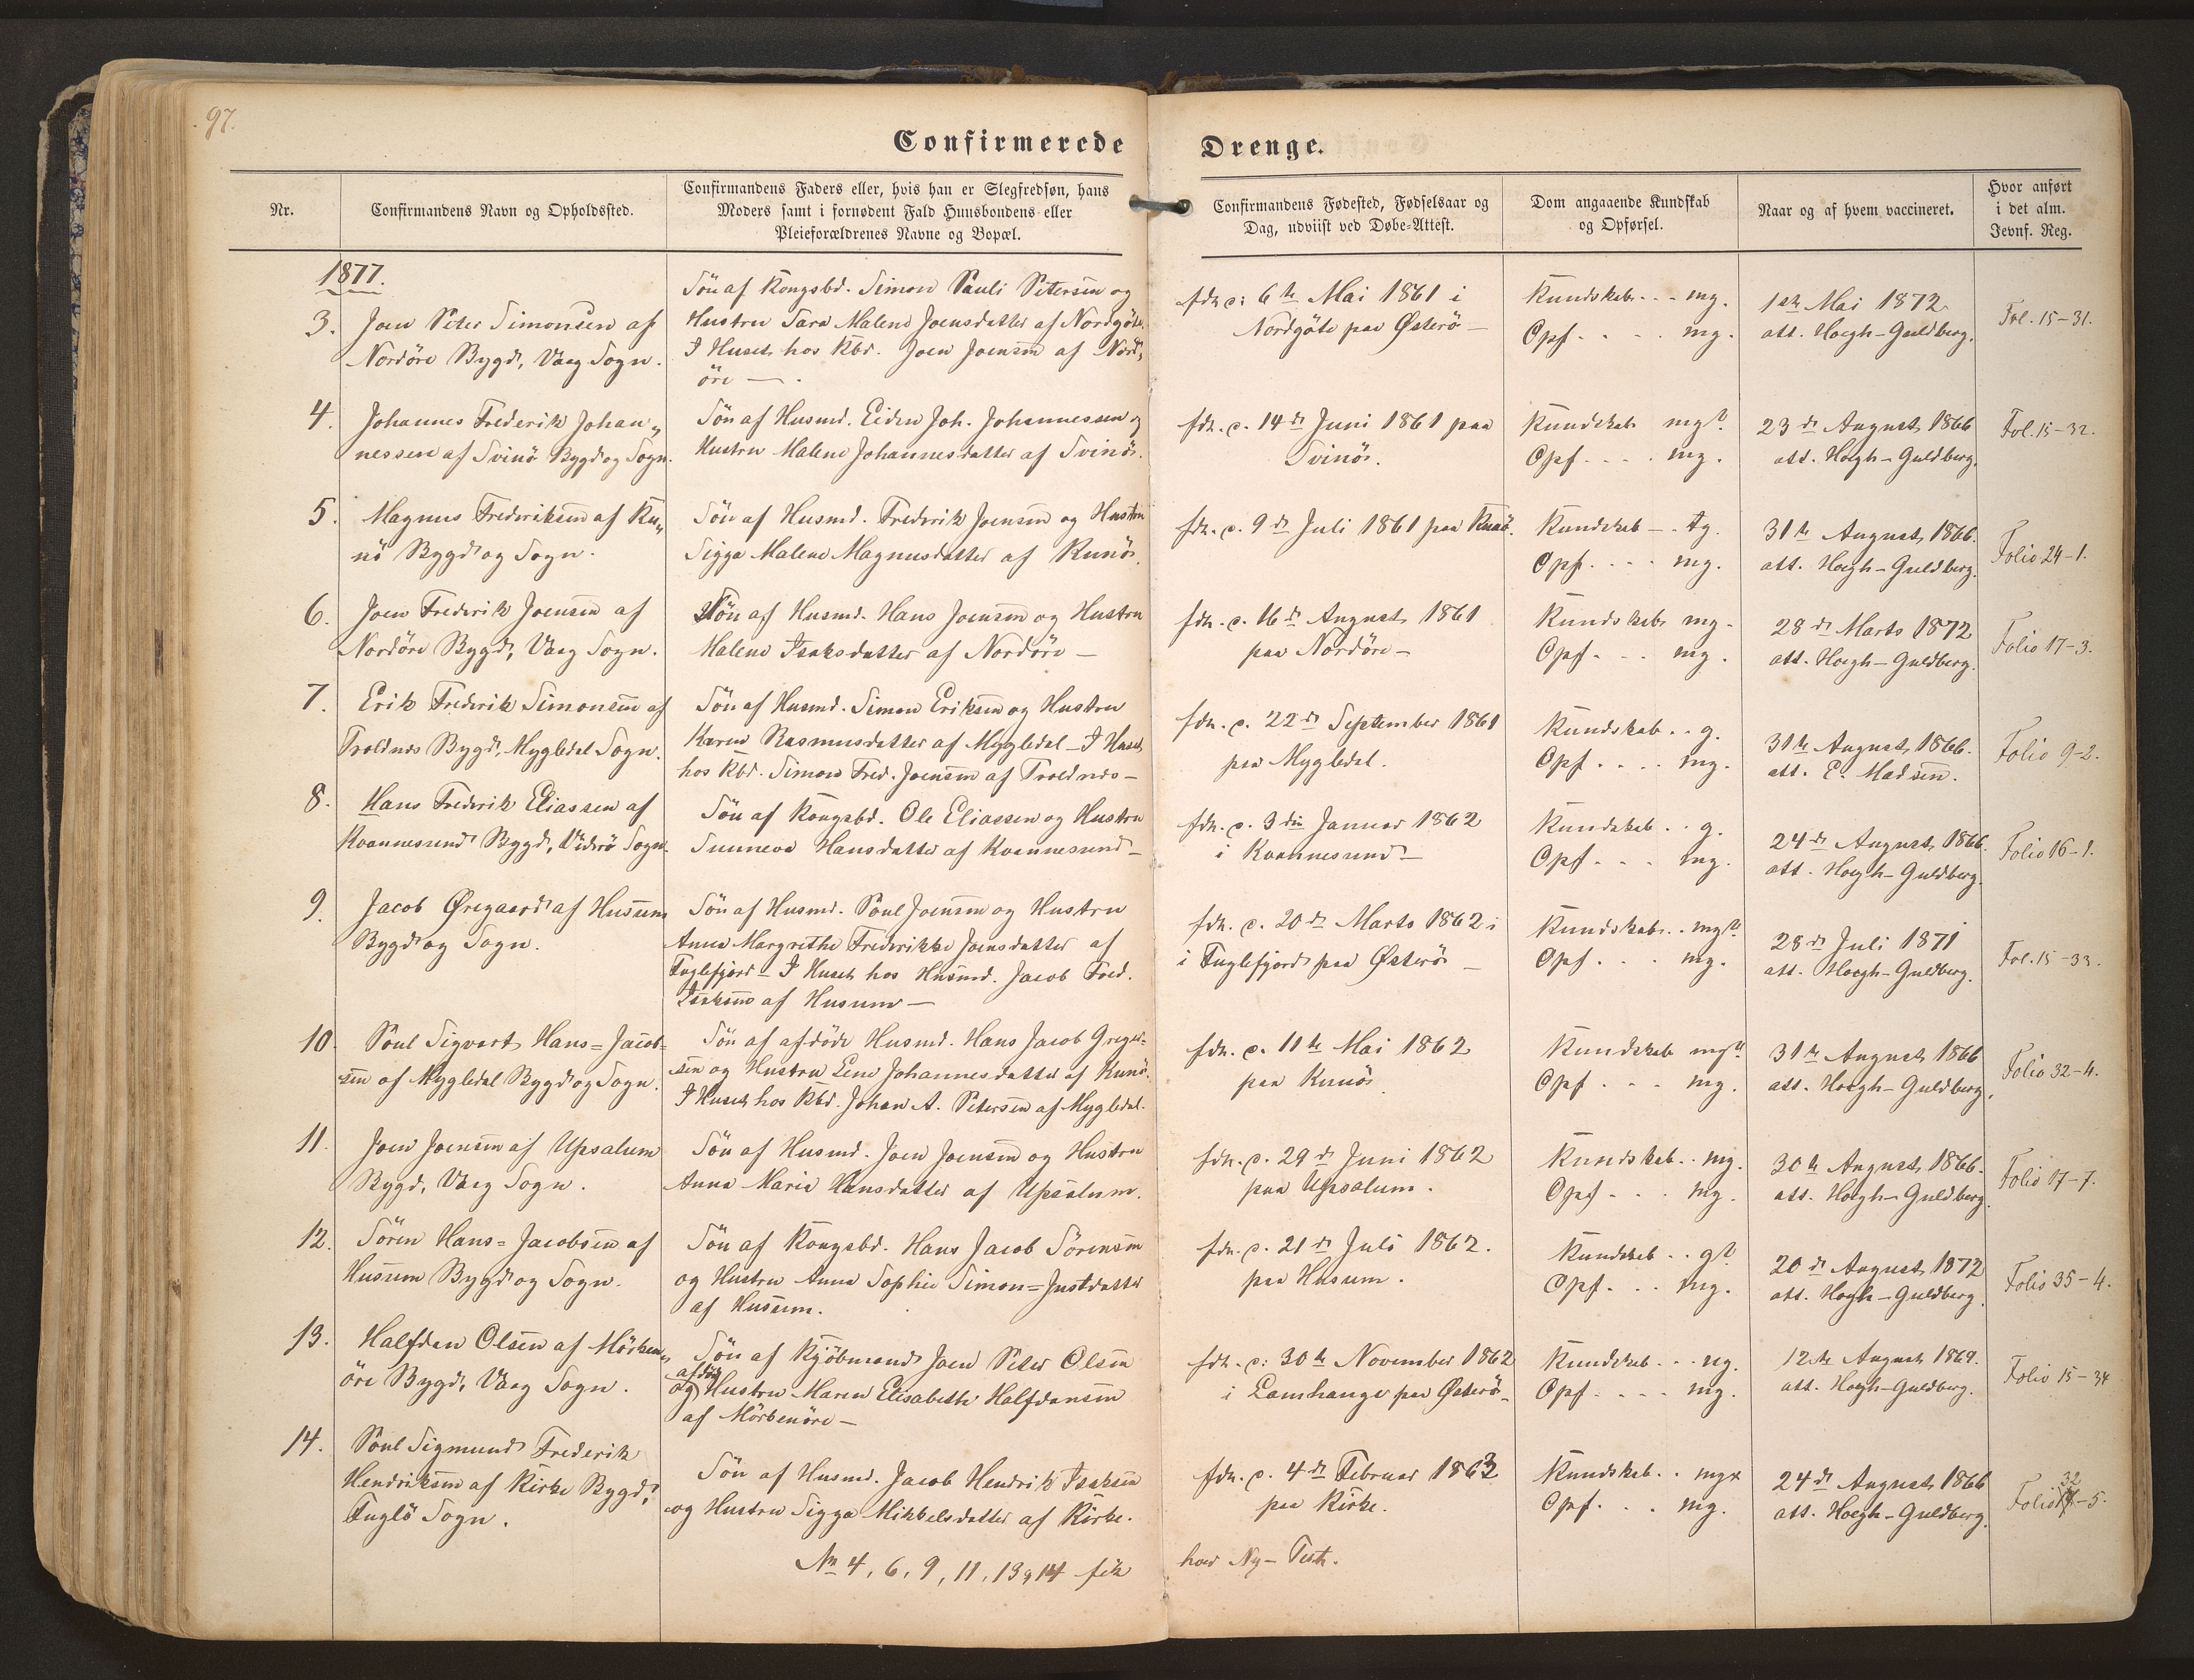 97.
Confirmerede Drenge.
Nr.
Confirmandens Navn og Opholdssted.
Confirmandens Faders eller, hvis han er Slegfredsøn, hans
Moders samt i fornødent Fald Huusbondens eller
Pleieforældrenes Navne og Bopæl.
Confirmandens Fødested, Fødselsaar og
Dag, udviist ved Døbe-Attest.
Dom angaaende Kundskab
og Opførsel.
Naar og af hvem vaccineret.
Hvor anført
i det alm.
Jevnf. Reg.
1877.
3.
Joen Peter Simonsen af
Nordöre Bygd, Vaag Sogn.
Sön af Kongsbd. Simon Pauli Petersen og
Hustru Sara Malene Joensdatter af Nordgöte.
I Huset hos Kbd. Joen Joensen af Nord,,
öre —.
fdt. d: 6te Mai 1861 i
Nordgöte paa Østerö —
Kundskab - - - mg.
Opf - - - - mg.
1ste Mai 1872
att. Hoegh-Guldberg.
Fol. 15-31.
4.
Johannes Frederik Johan,,
nessen af Svinö Bygd og Sogn.
Sön af Husmd. Eiden Joh. Johannessen og
Hustru Malene Johannesdatter af Svinö.
fdt. d. 14de Juni 1861 paa
Svinö.
Kundskab mg?
Opf - - - - mg.
23de August 1866
att. Hoegh-Guldberg.
Fol. 15-32.
5.
Magnus Frederiksen af Ku,,
nö Bygd og Sogn.
Sön af Husmd. Frederik Joensen og Hustru
Sigga Malene Magnusdatter af Kunö.
fdt. d. 9de Juli 1861 paa Kunö.
Kundskab - . tg.
Opf. - - - mg.
31te August 1866.
att. Hoegh-Guldberg.
Folio 24-1.
6.
Joen Frederik Joensen af
Nordöre Bygd, Vaag Sogn.
Sön af Husmd. Hans Joensen og Hustru
Malene Isaksdatter af Nordöre —
fdt. d. 16de August 1861
paa Nordöre —
Kundskab mg.
Opf - - - mg.
28de Marts 1872
att. Hoegh-Guldberg.
Folio 17-3.
7.
Erik Frederik Simonsen af
Troldnæs Bygd, Mygledal Sogn.
Sön af Husmd. Simon Eriksen og Hustru
Karen Rasmusdatter af Mygledal — I Huset
hos Kbd. Simon Fred. Joensen af Troldnæs —
fdt. d. 22de September 1861
paa Mygledal.
Kundskab . . g.
Opf . . . . mg.
31te August 1866.
att. E. Madsen.
Folio 9-2.
8.
Hans Frederik Eliassen af
Kvannesund Bygd, Viderö Sogn.
Sön af Kongsbd. Ole Eliassen og Hustru
Sunneva Hansdatter af Kvannesund —
fdt. d. 3die Januar 1862
i Kvannesund —
Kundskab . . g.
Opf - - - mg.
24de August 1866.
att. Hoegh-Guldberg.
Folio 16-1.
9.
Jacob Øregaard af Husum
Bygd og Sogn.
Sön af Husmd. Poul Joensen og Hustru
Anna Margrethe Frederikke Joensdatter af
Fuglefjord — I Huset hos Husmd. Jacob Fred.
Isaksen af Husum —
fdt. d. 20de Marts 1862 i
i Fuglefjord paa Østerö —
Kundskab . . mg?
Opf . . . mg.
28de Juli 1871
att. Hoegh-Guldberg.
Fol. 15-33.
10.
Poul Sigvart Hans=Jacob=
sen af Mygledal Bygd og Sogn.
Sön af afdöde Husmd. Hans Jacob Greger=
sen og Hustru Lene Johannesdatter af Kunö.
I Huset hos Kbd. Johan A. Petersen af Mygledal.
fdt. d. 11te Mai 1862
paa Kunö
Kundskab mg?
Opf . - - mg.
31te August 1866
att. Hoegh-Guldberg.
Folio 32-4.
11.
Joen Joensen af Upsalum
Bygd, Vaag Sogn.
Sön af Husmd. Joen Joensen og Hustru
Anna Maria Hansdatter af Upsalum.
fdt. d. 29de Juni 1862
paa Upsalum.
Kundskab . . mg.
Opf - - . mg.
30te August 1866.
att. Hoegh-Guldberg.
Folio 17-7.
12.
Sören Hans=Jacobsen af
Husum Bygd og Sogn.
Sön af Kongsbd. Hans Jacob Sörensen
og Hustru Anna Sophie Simon=Justdatter
af Husum.
fdt. d. 21de Juli 1862.
paa Husum.
Kundskab . . g?
Opf. . . mg.
20de August 1872
att. Hoegh-Guldberg.
Folio 35-4.
13.
Halfdan Olsen af Mörken,,
öre Bygd, Vaag Sogn.
Sön af Kjöbmand Joen Peter Olsen
og afdøde Hustru Maren Elisabeth Halfdansen
af Mörkenöre —
fdt. d: 30te November 1862
i Lamhauge paa Østerö —
Kundskab . . . ug.
Opf - - - - mg.
12te August 1869.
att. Hoegh-Guldberg.
Folio 15-34
14.
Poul Sigmund Frederik
Hendriksen af Kirke Bygd,
Fuglö Sogn.
Sön af Husmd. Jacob Hendrik Isaksen
og Hustru Sigga Mikkelsdatter af Kirke.
fdt. d. 4de Februar 1863
paa Kirke.
Kundskab . . mgx
Opf. . . mg.
24de August 1866
att. Hoegh-Guldberg.
Folio 32-5.
No 4, 6, 9, 11, 13 & 14 fik hver Ny-Test.